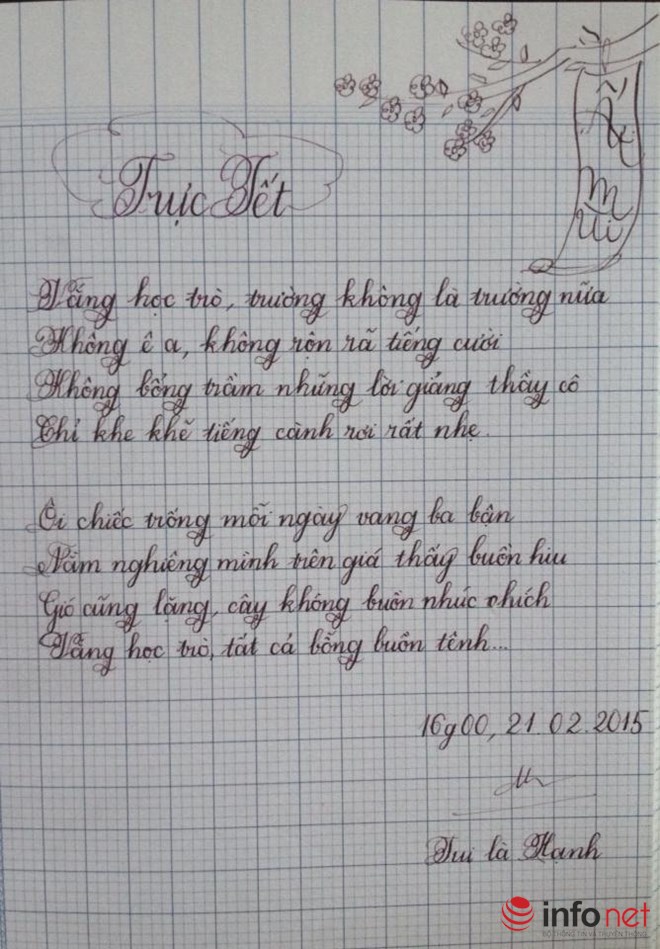 Ất
Mùi
Trực Tết
Vắng học trò, trường không là trường nữa
Không ê a, không rôn rã tiếng cười
Không bổng trầm những lời giảng thầy cô
Chỉ khe khẽ tiếng cành rơi rất nhẹ.
Ôi chiếc trống mỗi ngày vang ba bận
Nằm nghiêng mình trên giá thấy buồn hiu
Gió cũng lặng, cây không buồn nhúc nhích
Vắng học trò, tất cả bỗng buồn tênh...
16g00, 21.02.2015
Tui là Hạnh
infonet